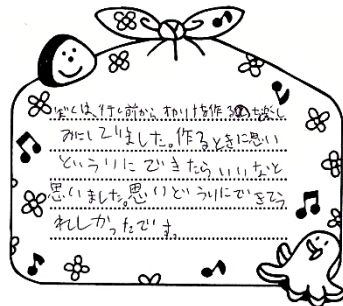 ぼくは、行く前から、を作るのを楽し
みにしていました。作るときに思い
どうりにできたらいいなと
思いました。思いどうりにできてう
れしかったです。